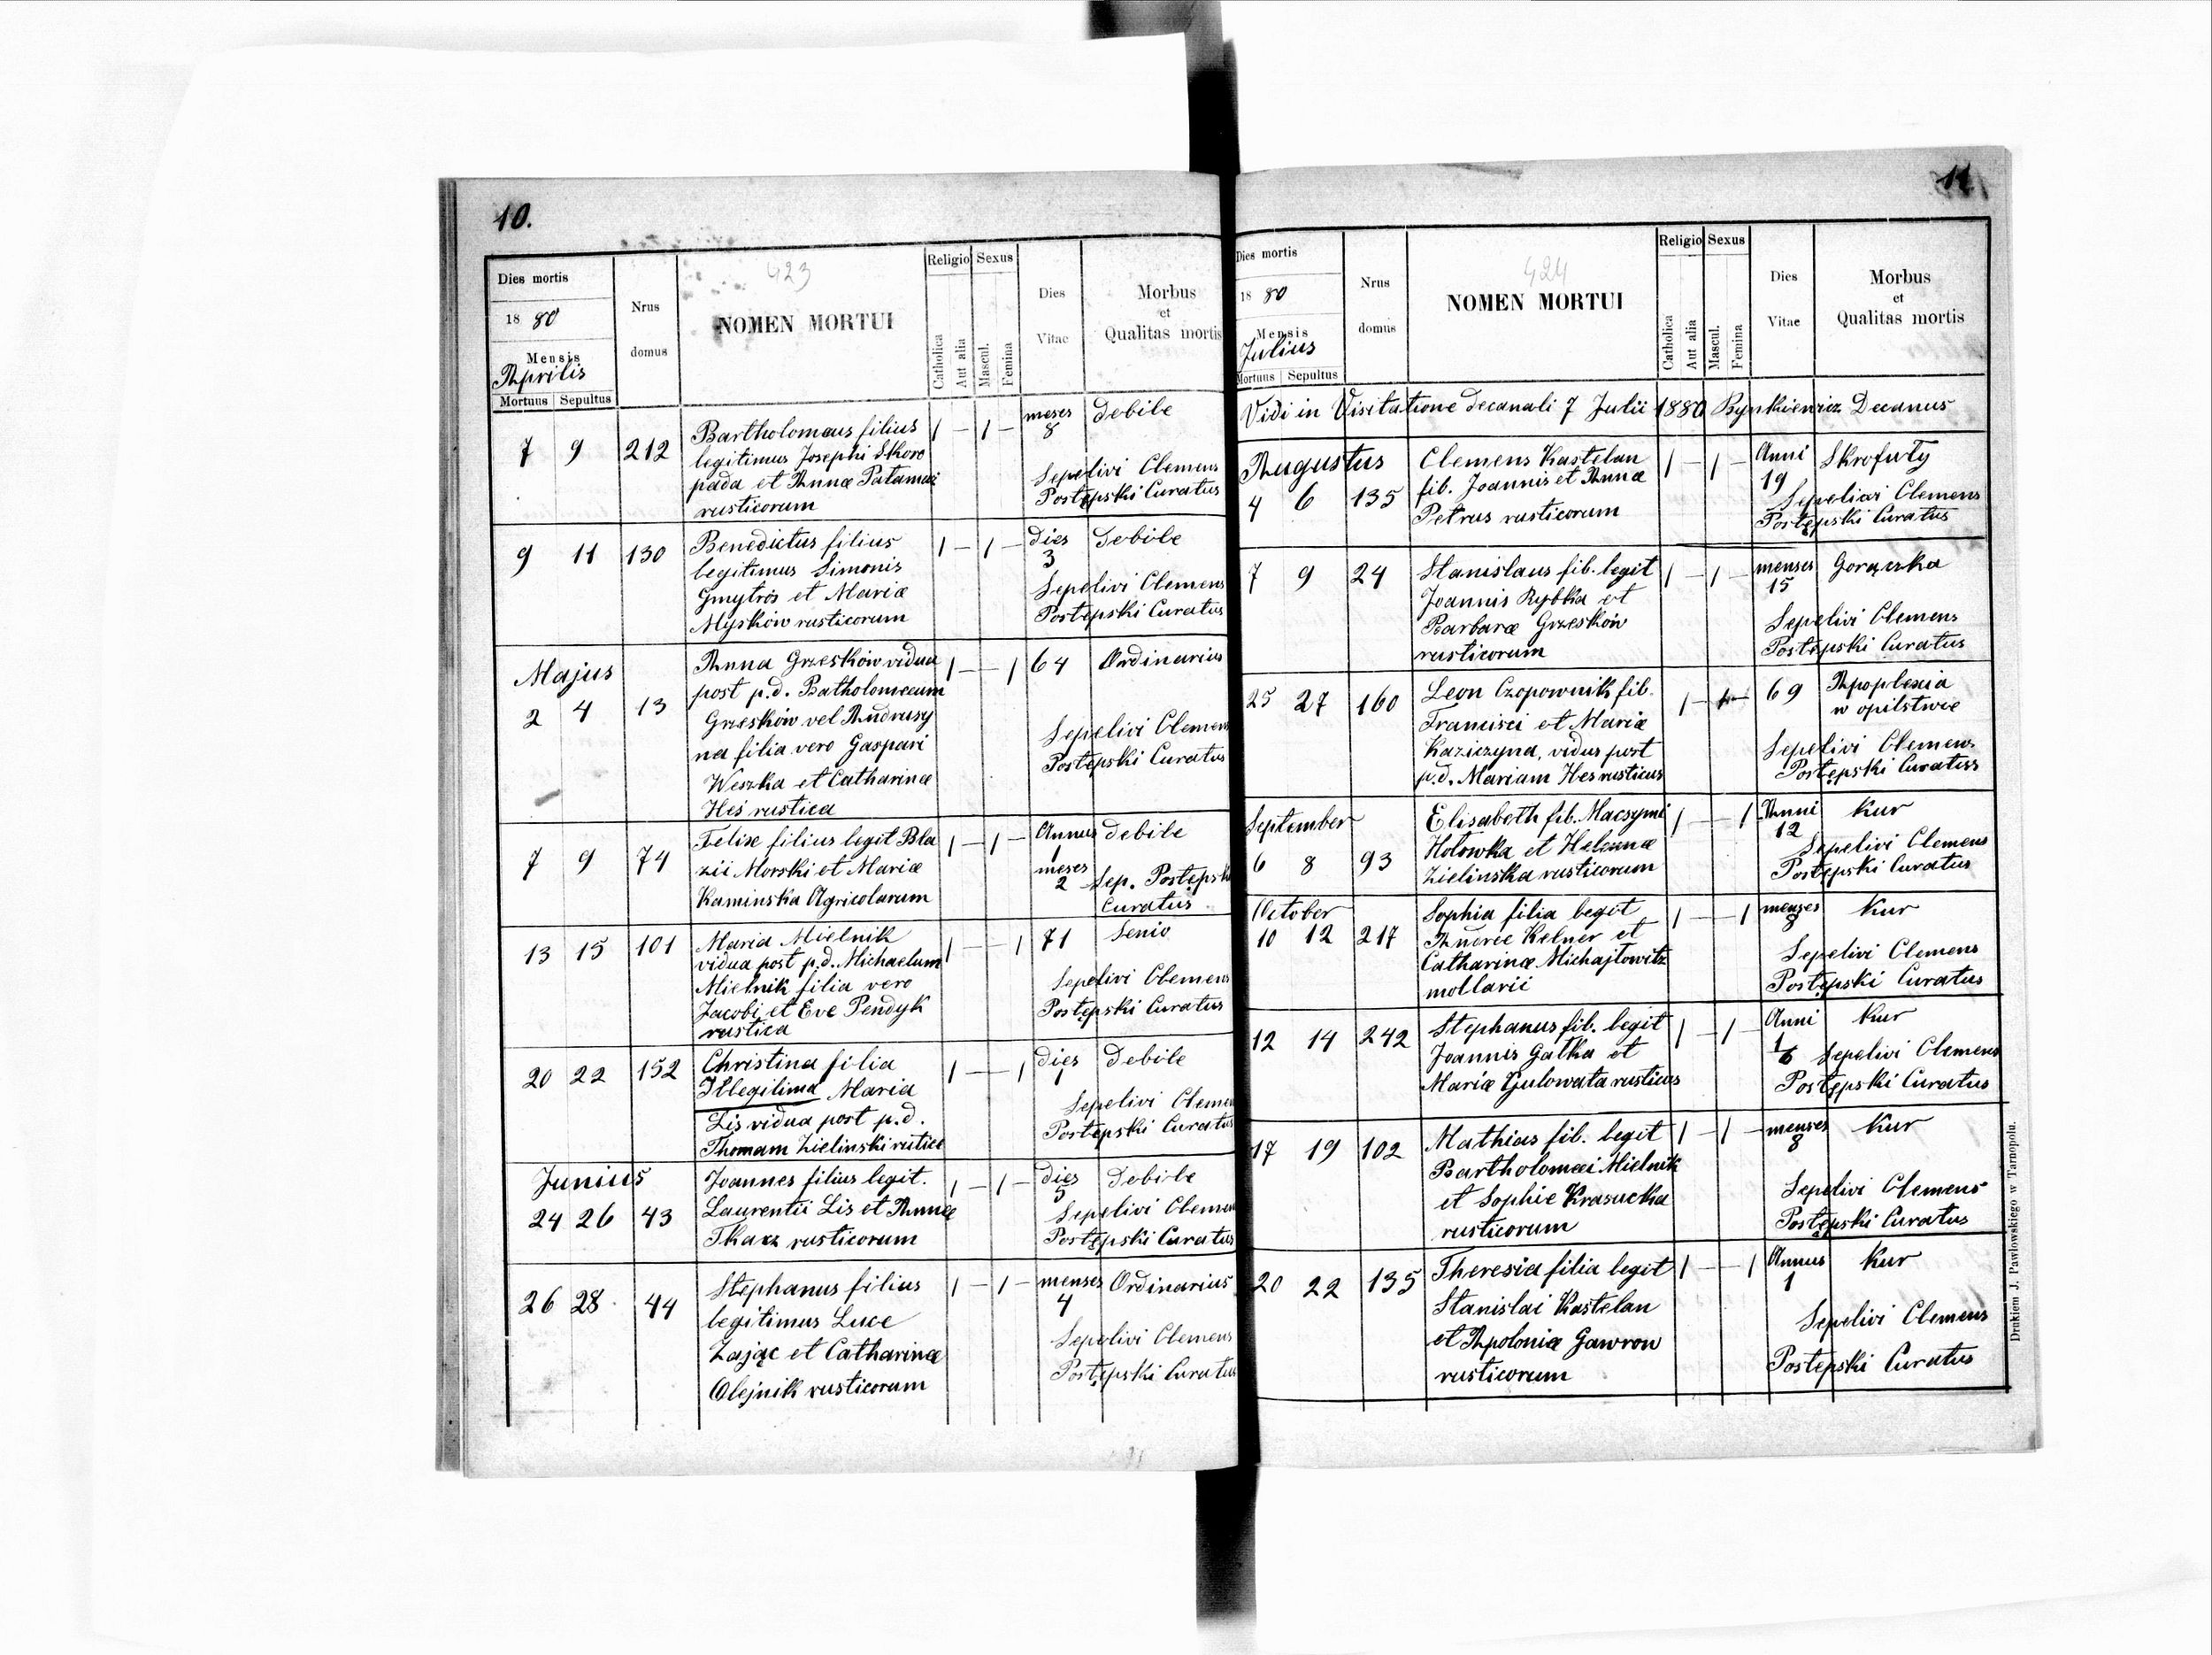 10.
Dies mortis
18 80
Mensis
Aprilis
Mortuus Sepultus
Nrus
domus
423
NOMEN MORTUI
Religio Sexus
Catholica
Aut alia
Mascul.
Femina
Dies
Vitae
Morbus
et
Qualitas mortis
7 9 212 Bartholomæus filius 1 — 1 — meses debile
legitimus Josephi Skoro 8
pada et Annæ
rusticorum
Sepelivi Clemens
Postępski Curatus
9 11 130 Benedictus filius 1 — 1 — dies debile
legitimus Simonis 3
Gmytrós et Mariæ
Myśków rusticorum
Sepelivi Clemens
Postępski Curatus
Majus
2 4 13 Anna Grześków vidua 1 — — 1 64 Ordinarius
post p.d. Batholomæum
Grześków vel Andrusy
na filia vero Gaspari
Weszka et Catharinæ
Heś rustica
Sepelivi Clemens
Postępski Curatus
7 9 74 Felix filius legit Bla 1 — 1 — Annus debile
zii Morski et Mariæ 1
Kaminska Agricolarum meses
2 Sep. Postępski
Curatus
13 15 101 Maria Mielnik 1 — — 1 71 Senio
vidua post p.d. Michaelum
Mielnik filia vero
Jacobi et Eve Pendyk
rustica
Sepelivi Clemens
Postępski Curatus
20 22 152 Christina filia 1 — — 1 dies Debile
Illegitima Maria 1
Lis vidua post p.d.
Thomam Zielinski
Sepelivi Clemens
Postępski Curatus
Junius
24 26 43 Joannes filius legit. 1 — 1 — dies Debile
Laurentii Lis et Annæ 5
Tkacz rusticorum
Sepelivi Clemens
Postępski Curatus
26 28 44 Stephanus filius 1 — 1 — menses Ordinarius
legitimus Luce 4
Zając et Catharinæ
Olejnik rusticorum
Sepelivi Clemens
Postępski Curatus
11
Dies mortis
18 80
Mensis
Julius
Mortuus Sepultus
Nrus
domus
424
NOMEN MORTUI
Religio Sexus
Catholica
Aut alia
Mascul.
Femina
Dies
Vitae
Morbus
et
Qualitas mortis
Vidi in Visitatione decanali 7 Julii 1880 Decanus
Augustus
4 6 135 Clemens Kastelan 1 — 1 — Anni Skrofuły
fil. Joannis et Annæ 19
Petrus rusticorum
Sepelivi Clemens
Postępski Curatus
7 9 24 Stanislaus fil. legit 1 — 1 — menses Gorączka
Joannis Rybka et 15
Barbaræ Grześków
rusticorum
Sepelivi Clemens
Postępski Curatus
25 27 160 Leon Czopownik fil. 1 — 1 — 69 Apoplexia
Francisci et Mariæ w opilstwie
Kaziczyna, vidus post
p.d. Mariam Hes rusticus
Sepelivi Clemens
Postępski Curatus
September
6 8 93 Elisabeth fil. Macsymi 1 — — 1 Anni Kur
Hołowka et Helennæ 12
Zielinska rusticorum
Sepelivi Clemens
Postępski Curatus
October
10 12 217 Sophia filia legit 1 — — 1 menses Kur
Andree Kelner et 8
Catharinæ Michajłowitz
mollarii
Sepelivi Clemens
Postępski Curatus
12 14 242 Stephanus fil. legit 1 — 1 — Anni Kur
Joannis Gałka et 1
Mariæ rusticus 6
Sepelivi Clemens
Postępski Curatus
17 19 102 Mathias fil. legit 1 — 1 — menses Kur
Bartholomæi Mielnik 8
et Sophie Krasucka
rusticorum
Sepelivi Clemens
Postępski Curatus
20 22 135 Theresia filia legit 1 — — 1 Annus Kur
Stanislai Kastelan 1
et Apoloniæ Gawron
rusticorum
Sepelivi Clemens
Postępski Curatus
Drukiem J. Pawłowskiego w Tarnopolu.